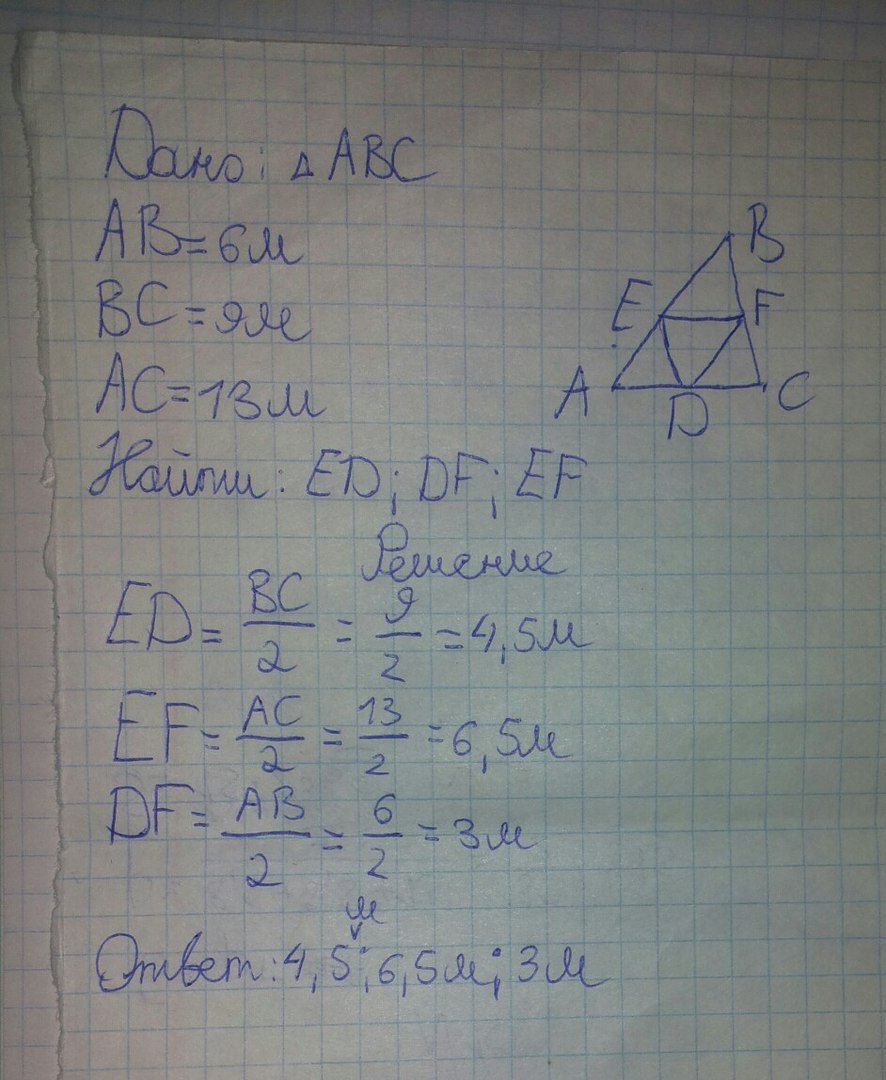 Дано: △ABC
AB=6м
BC=9м
AC=13м
Найти: ED; DF; EF
B
E
F
A
D
C
Решение
ED = BC/2 = 9/2 = 4,5м
EF = AC/2 = 13/2 = 6,5м
DF = AB/2 = 6/2 = 3м
Ответ: 4,5м; 6,5м; 3м